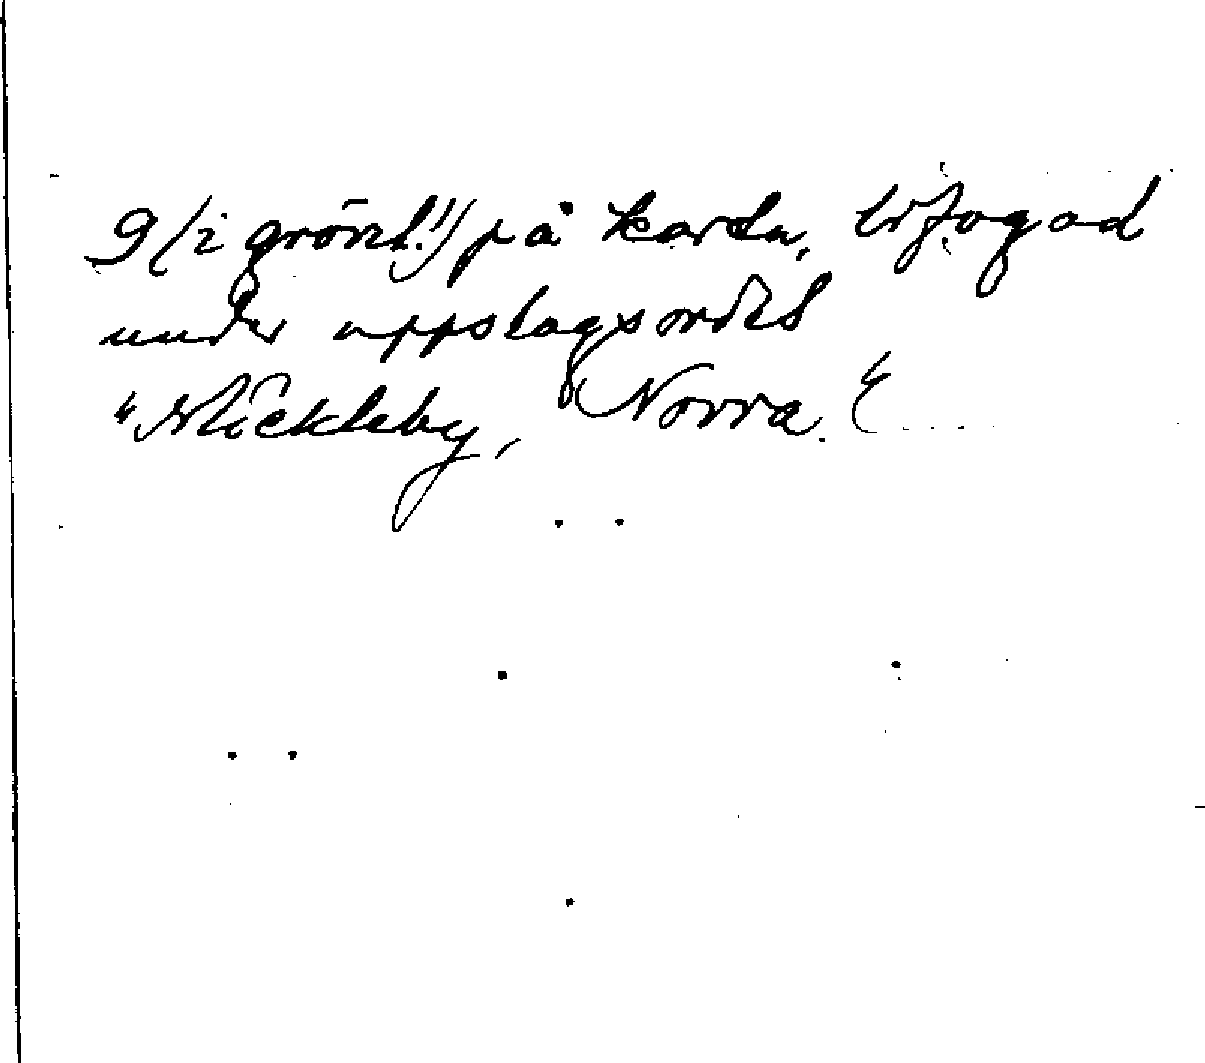 9 (i grönt!) på karta, bifogad
under uppslagsordet
"Möckleby, Norra."